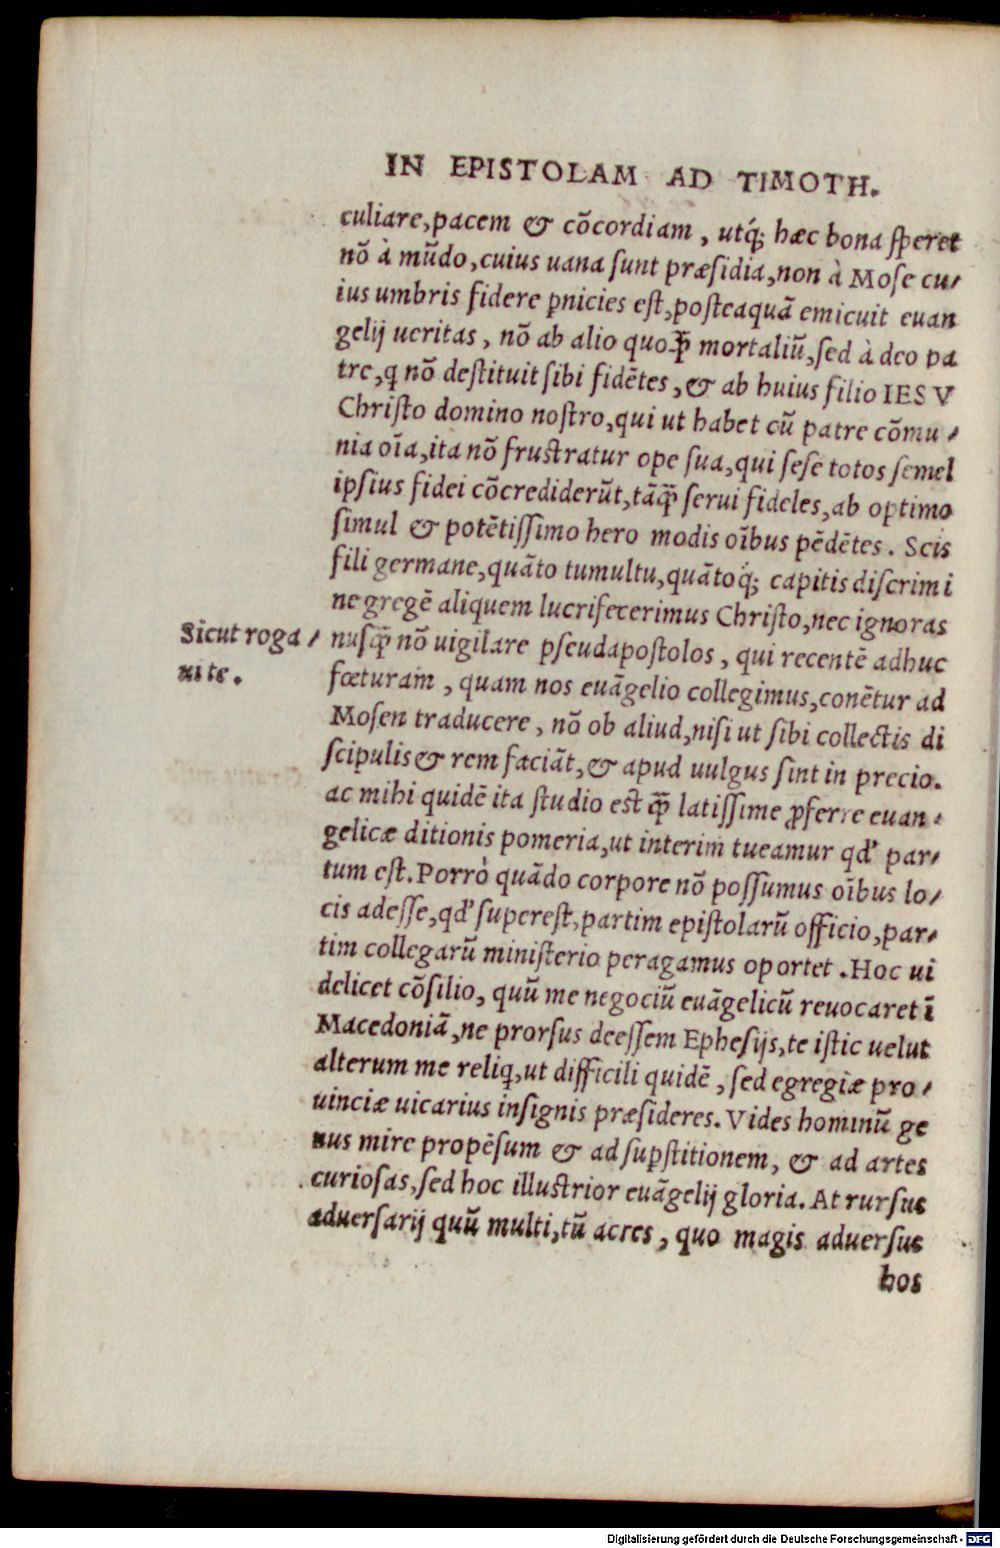 IN EPISTOLAM AD TIMOTH.
culiare, pacem & cõcordiam, utq́; hæc bona ſperet
nõ à mũdo, cuius uana ſunt præſidia, non à Moſe cu/
ius umbris fidere ꝑnicies eſt, poſteaquã emicuit euan
gelij ueritas, nõ ab alio quoꝗ̃ mortaliũ, ſed à deo pa
tre, q nõ deſtituit ſibi fidẽtes, & ab huius filio IESV
Chriſto domino noſtro, qui ut habet cũ patre cõmu/
nia oĩa, ita nõ fruſtratur ope ſua, qui ſeſe totos ſemel
ipſius fidei cõcrediderũt, tãꝗ̃ ſerui fideles, ab optimo
ſimul & potẽtiſſimo hero modis oĩbus pẽdẽtes. Scis
fili germane, quãto tumultu, quãtoq́; capitis diſcrimi
ne gregẽ aliquem lucrifecerimus Chriſto, nec ignoras
Sicut roga/
ui te.
nuſꝗ̃ nõ uigilare pſeudapoſtolos, qui recentẽ adhuc
fœturam, quam nos euãgelio collegimus, conẽtur ad
Moſen traducere, nõ ob aliud, niſi ut ſibi collectis di
ſcipulis & rem faciãt, & apud uulgus ſint in precio.
ac mihi quidẽ ita ſtudio eſt ꝗ̃ latiſſime ꝓferre euan/
gelicæ ditionis pomeria, ut interim tueamur qd' par/
tum eſt. Porrò quãdo corpore nõ poſſumus oĩbus lo/
cis adeſſe, qd' ſupereſt, partim epiſtolarũ officio, par/
tim collegarũ miniſterio peragamus oportet. Hoc ui
delicet cõſilio, quũ me negociũ euãgelicũ reuocaret ĩ
Macedoniã, ne prorſus deeſſem Epheſijs, te iſtic uelut
alterum me reliq, ut difficili quidẽ, ſed egregiæ pro/
uinciæ uicarius inſignis præſideres. Vides hominũ ge
nus mire propẽſum & ad ſuꝑſtitionem, & ad artes
curioſas, ſed hoc illuſtrior euãgelij gloria. At rurſus
aduerſarij quũ multi, tũ acres, quo magis aduerſus
hos
Digitalisierung gefördert durch die Deutsche Forschungsgemeinschaft - DFG